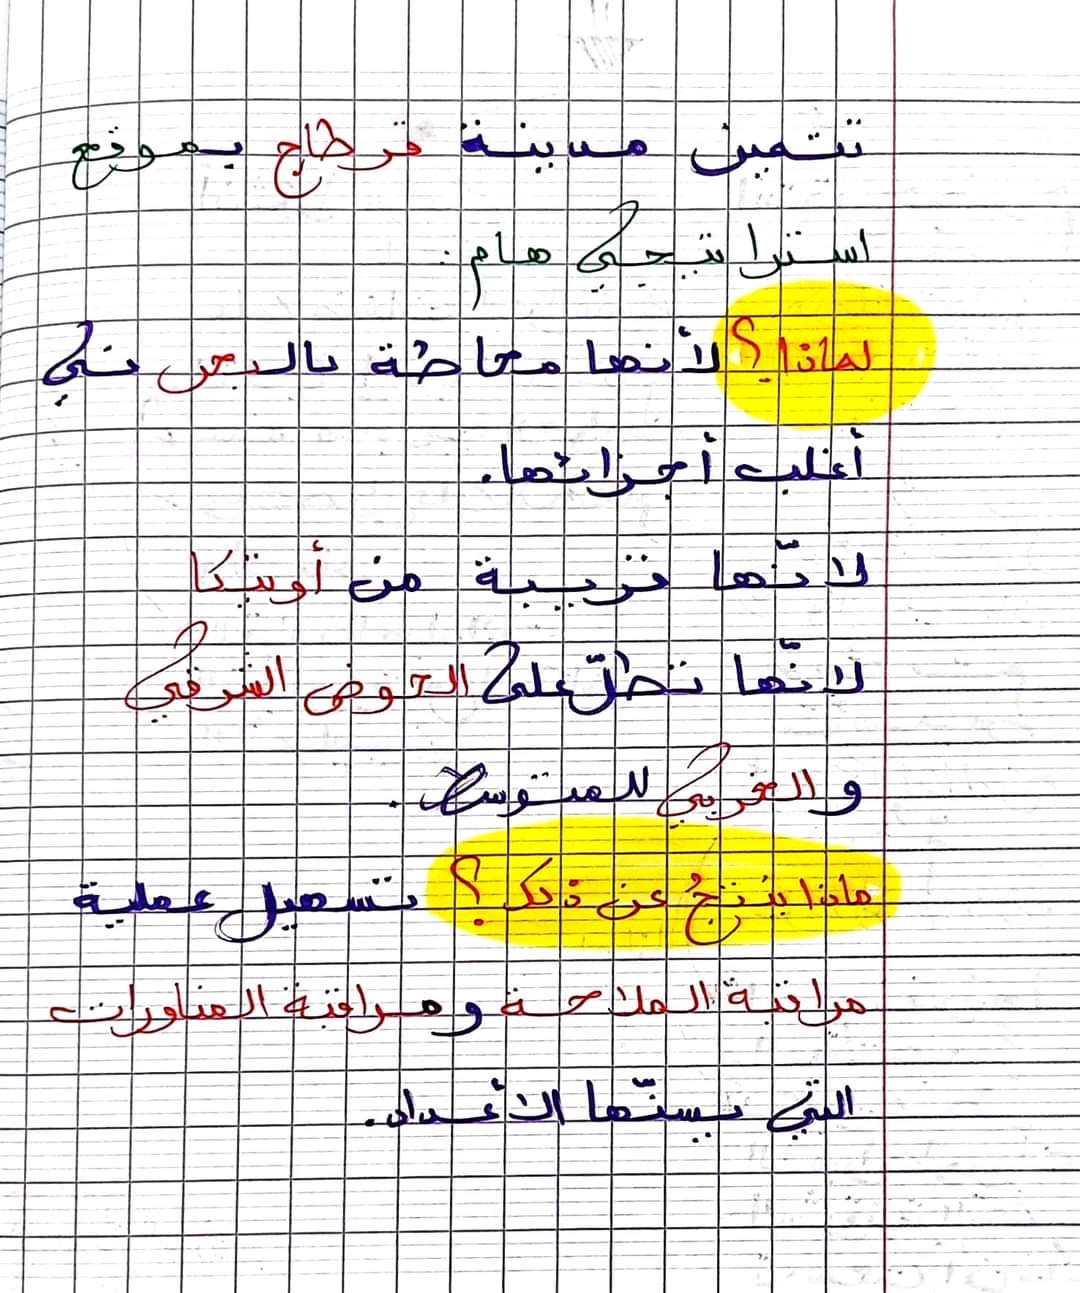 تتميز مدينة قرطاج بموقع
استراتيجي هام :
لماذا؟ لأنها محاطة بالبحر في
أغلب أجزائها.
لانّها قريبة من أوتيكا
لانّها تطلّ على الحوض الشرقي
و الغربي للمتوسط .
ماذا ينتجُ عن ذلك ؟ تسهيل عملية
مراقبة الملاحة ومراقبة المناورات
التي يسنّها الأعداء.